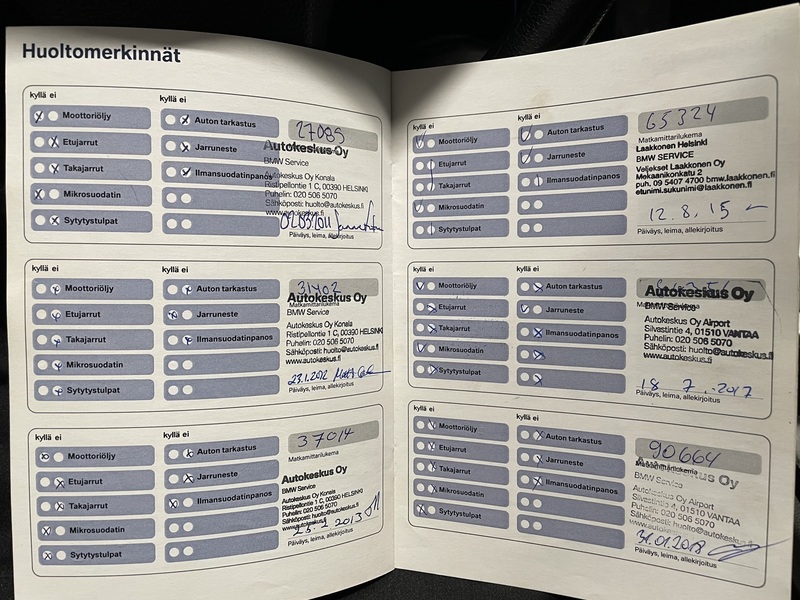 Huoltomerkinnät
kyllä ei
kyllä ei
Moottoriöljy
Etujarrut
Takajarrut
Mikrosuodatin
Sytytystulpat
Auton tarkastus
Jarruneste
Ilmansuodatinpanos
27089
Autokeskus Oy
BMW Service
Autokeskus Oy Konala
Ristipellontie 1 C, 00390 HELSINKI
Puhelin: 020 506 5070
Sähköposti: huolto@autokeskus.fi
www.autokeskus.fi
02.03.2011
Päiväys, leima, allekirjoitus
kyllä ei
kyllä ei
Moottoriöljy
Etujarrut
Takajarrut
Mikrosuodatin
Sytytystulpat
Auton tarkastus
Jarruneste
Ilmansuodatinpanos
31402
Autokeskus Oy
Matkamittarilukema
BMW Service
Autokeskus Oy Konala
Ristipellontie 1 C, 00390 HELSINKI
Puhelin: 020 506 5070
Sähköposti: huolto@autokeskus.fi
www.autokeskus.fi
23.1.2012
Päiväys, leima, allekirjoitus
kyllä ei
kyllä ei
Moottoriöljy
Etujarrut
Takajarrut
Mikrosuodatin
Sytytystulpat
Auton tarkastus
Jarruneste
Ilmansuodatinpanos
37014
Matkamittarilukema
Autokeskus Oy
BMW Service
Autokeskus Oy Konala
Ristipellontie 1 C, 00390 HELSINKI
Puhelin: 020 506 5070
Sähköposti: huolto@autokeskus.fi
www.autokeskus.fi
2013
Päiväys, leima, allekirjoitus
kyllä ei
kyllä ei
Moottoriöljy
Etujarrut
Takajarrut
Mikrosuodatin
Sytytystulpat
Auton tarkastus
Jarruneste
Ilmansuodatinpanos
65324
Matkamittarilukema
Laakkonen Helsinki
BMW SERVICE
Veljekset Laakkonen Oy
Mekaanikonkatu 2
puh. 09 5407 4700 bmw.laakkonen.fi
etunimi.sukunimi@laakkonen.fi
12.8.15
Päiväys, leima, allekirjoitus
kyllä ei
kyllä ei
Moottoriöljy
Etujarrut
Takajarrut
Mikrosuodatin
Sytytystulpat
Auton tarkastus
Jarruneste
Ilmansuodatinpanos
Autokeskus Oy
BMW Service
Autokeskus Oy Airport
Silvastintie 4, 01510 VANTAA
Puhelin: 020 506 5070
Sähköposti: huolto@autokeskus.fi
www.autokeskus.fi
18.7.2017
Päiväys, leima, allekirjoitus
kyllä ei
kyllä ei
Moottoriöljy
Etujarrut
Takajarrut
Mikrosuodatin
Sytytystulpat
Auton tarkastus
Jarruneste
Ilmansuodatinpanos
90664
Matkamittarilukema
Autokeskus Oy
BMW Service
Autokeskus Oy Airport
Silvastintie 4, 01510 VANTAA
Puhelin: 020 506 5070
Sähköposti: huolto@autokeskus.fi
www.autokeskus.fi
31.01.2018
Päiväys, leima, allekirjoitus